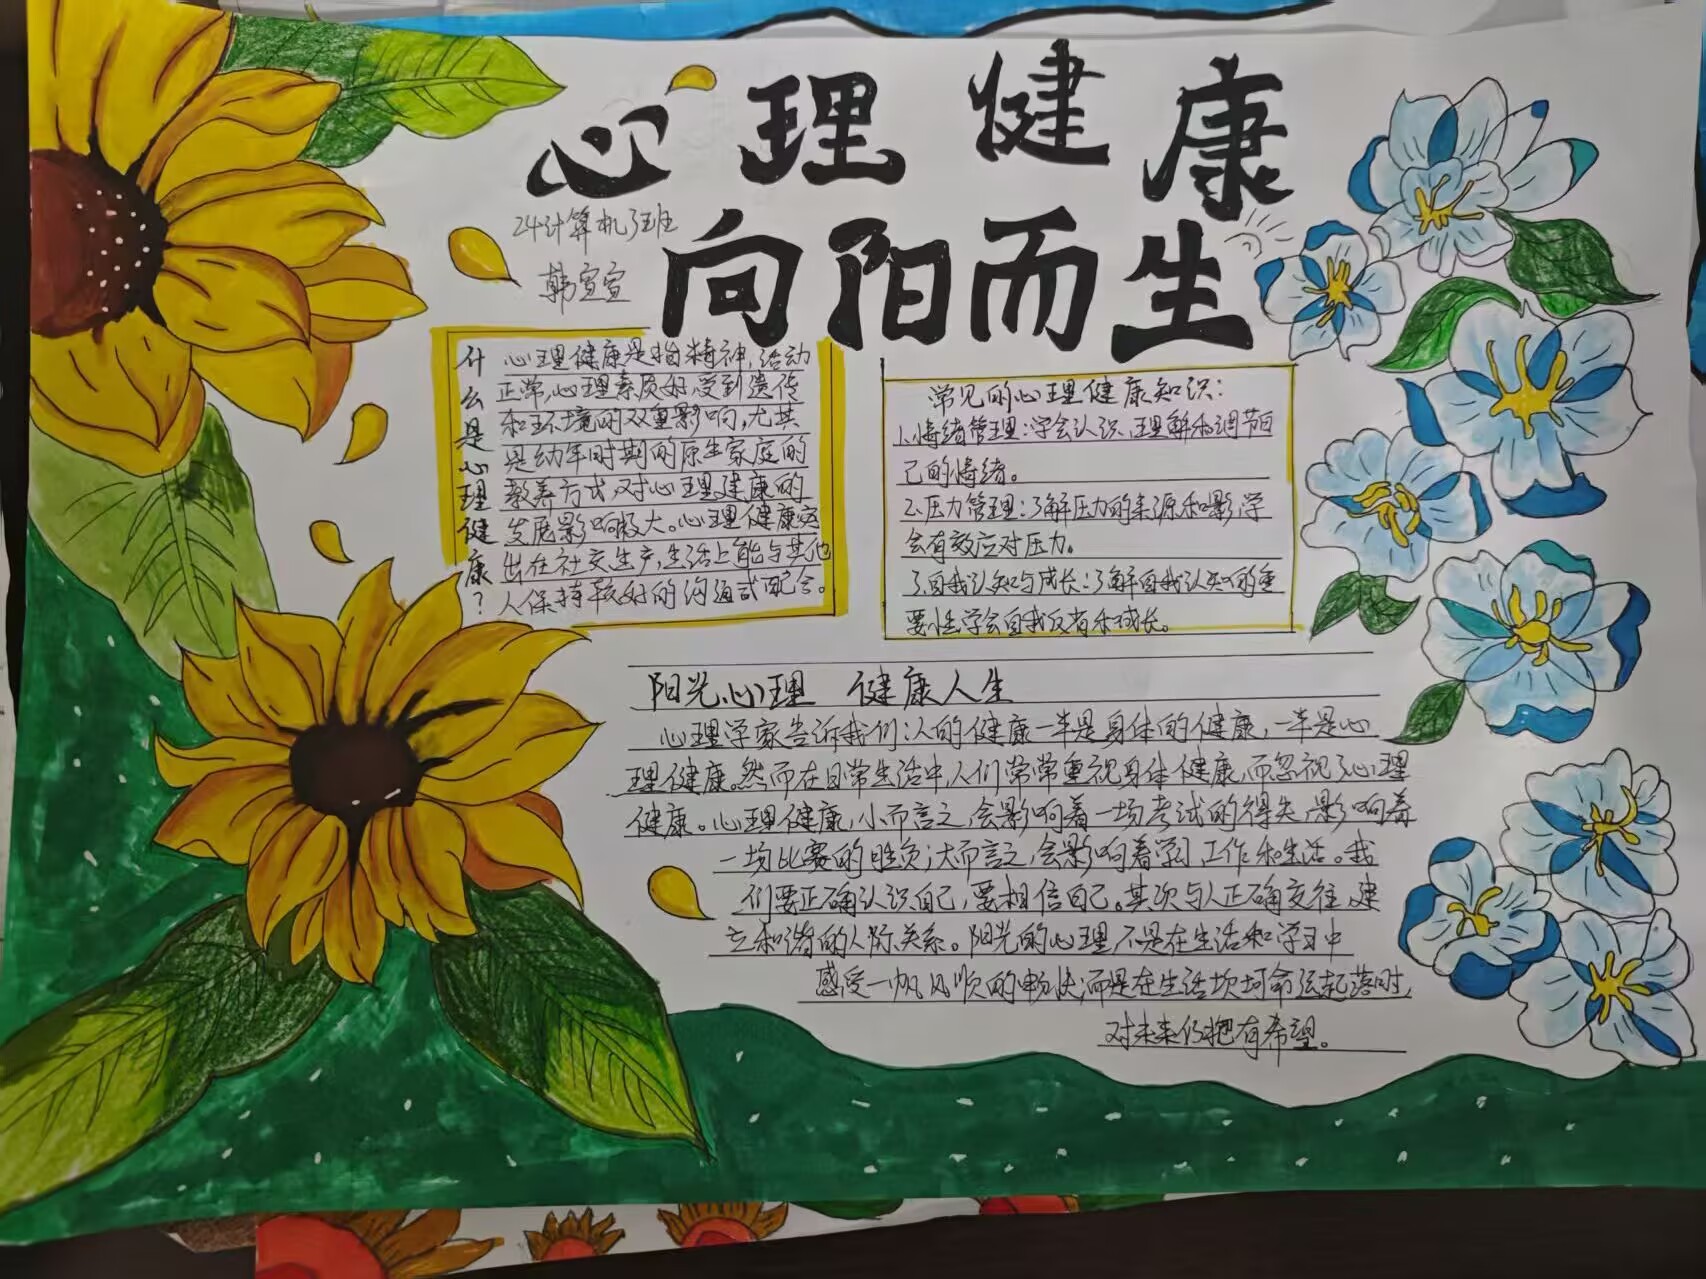 心理健康
向阳而生
24计算机3班
韩宣宣
什么是心理健康?
心理健康是指精神,活动
正常,心理素质好,受到遗传
和环境的双重影响,尤其
是幼年时期的原生家庭的
教养方式,对心理健康的
发展影响极大。心理健康突
出在社交生产,生活上能与其他
人保持较好的沟通或配合。
常见的心理健康知识:
1.情绪管理:学会认识、理解和调节自
己的情绪。
2.压力管理:了解压力的来源和影,学
会有效应对压力。
3自我认知与成长:了解自我认知的重
要性学会自我反省和成长。
阳光心理 健康人生
心理学家告诉我们:人的健康一半是身体的健康,一半是心
理健康。然而在日常生活中,人们常常重视身体健康,而忽视了心理
健康。心理健康,小而言之,会影响着一场考试的得失,影响着
一场比赛的胜负;大而言之,会影响着学习工作和生活。我
们要正确认识自己,要相信自己。其次与人正确交往,建
立和谐的人际关系。阳光的心理,不是在生活和学习中
感受一帆风顺的畅快,而是在生活坎坷命运起落时,
对未来仍抱有希望。